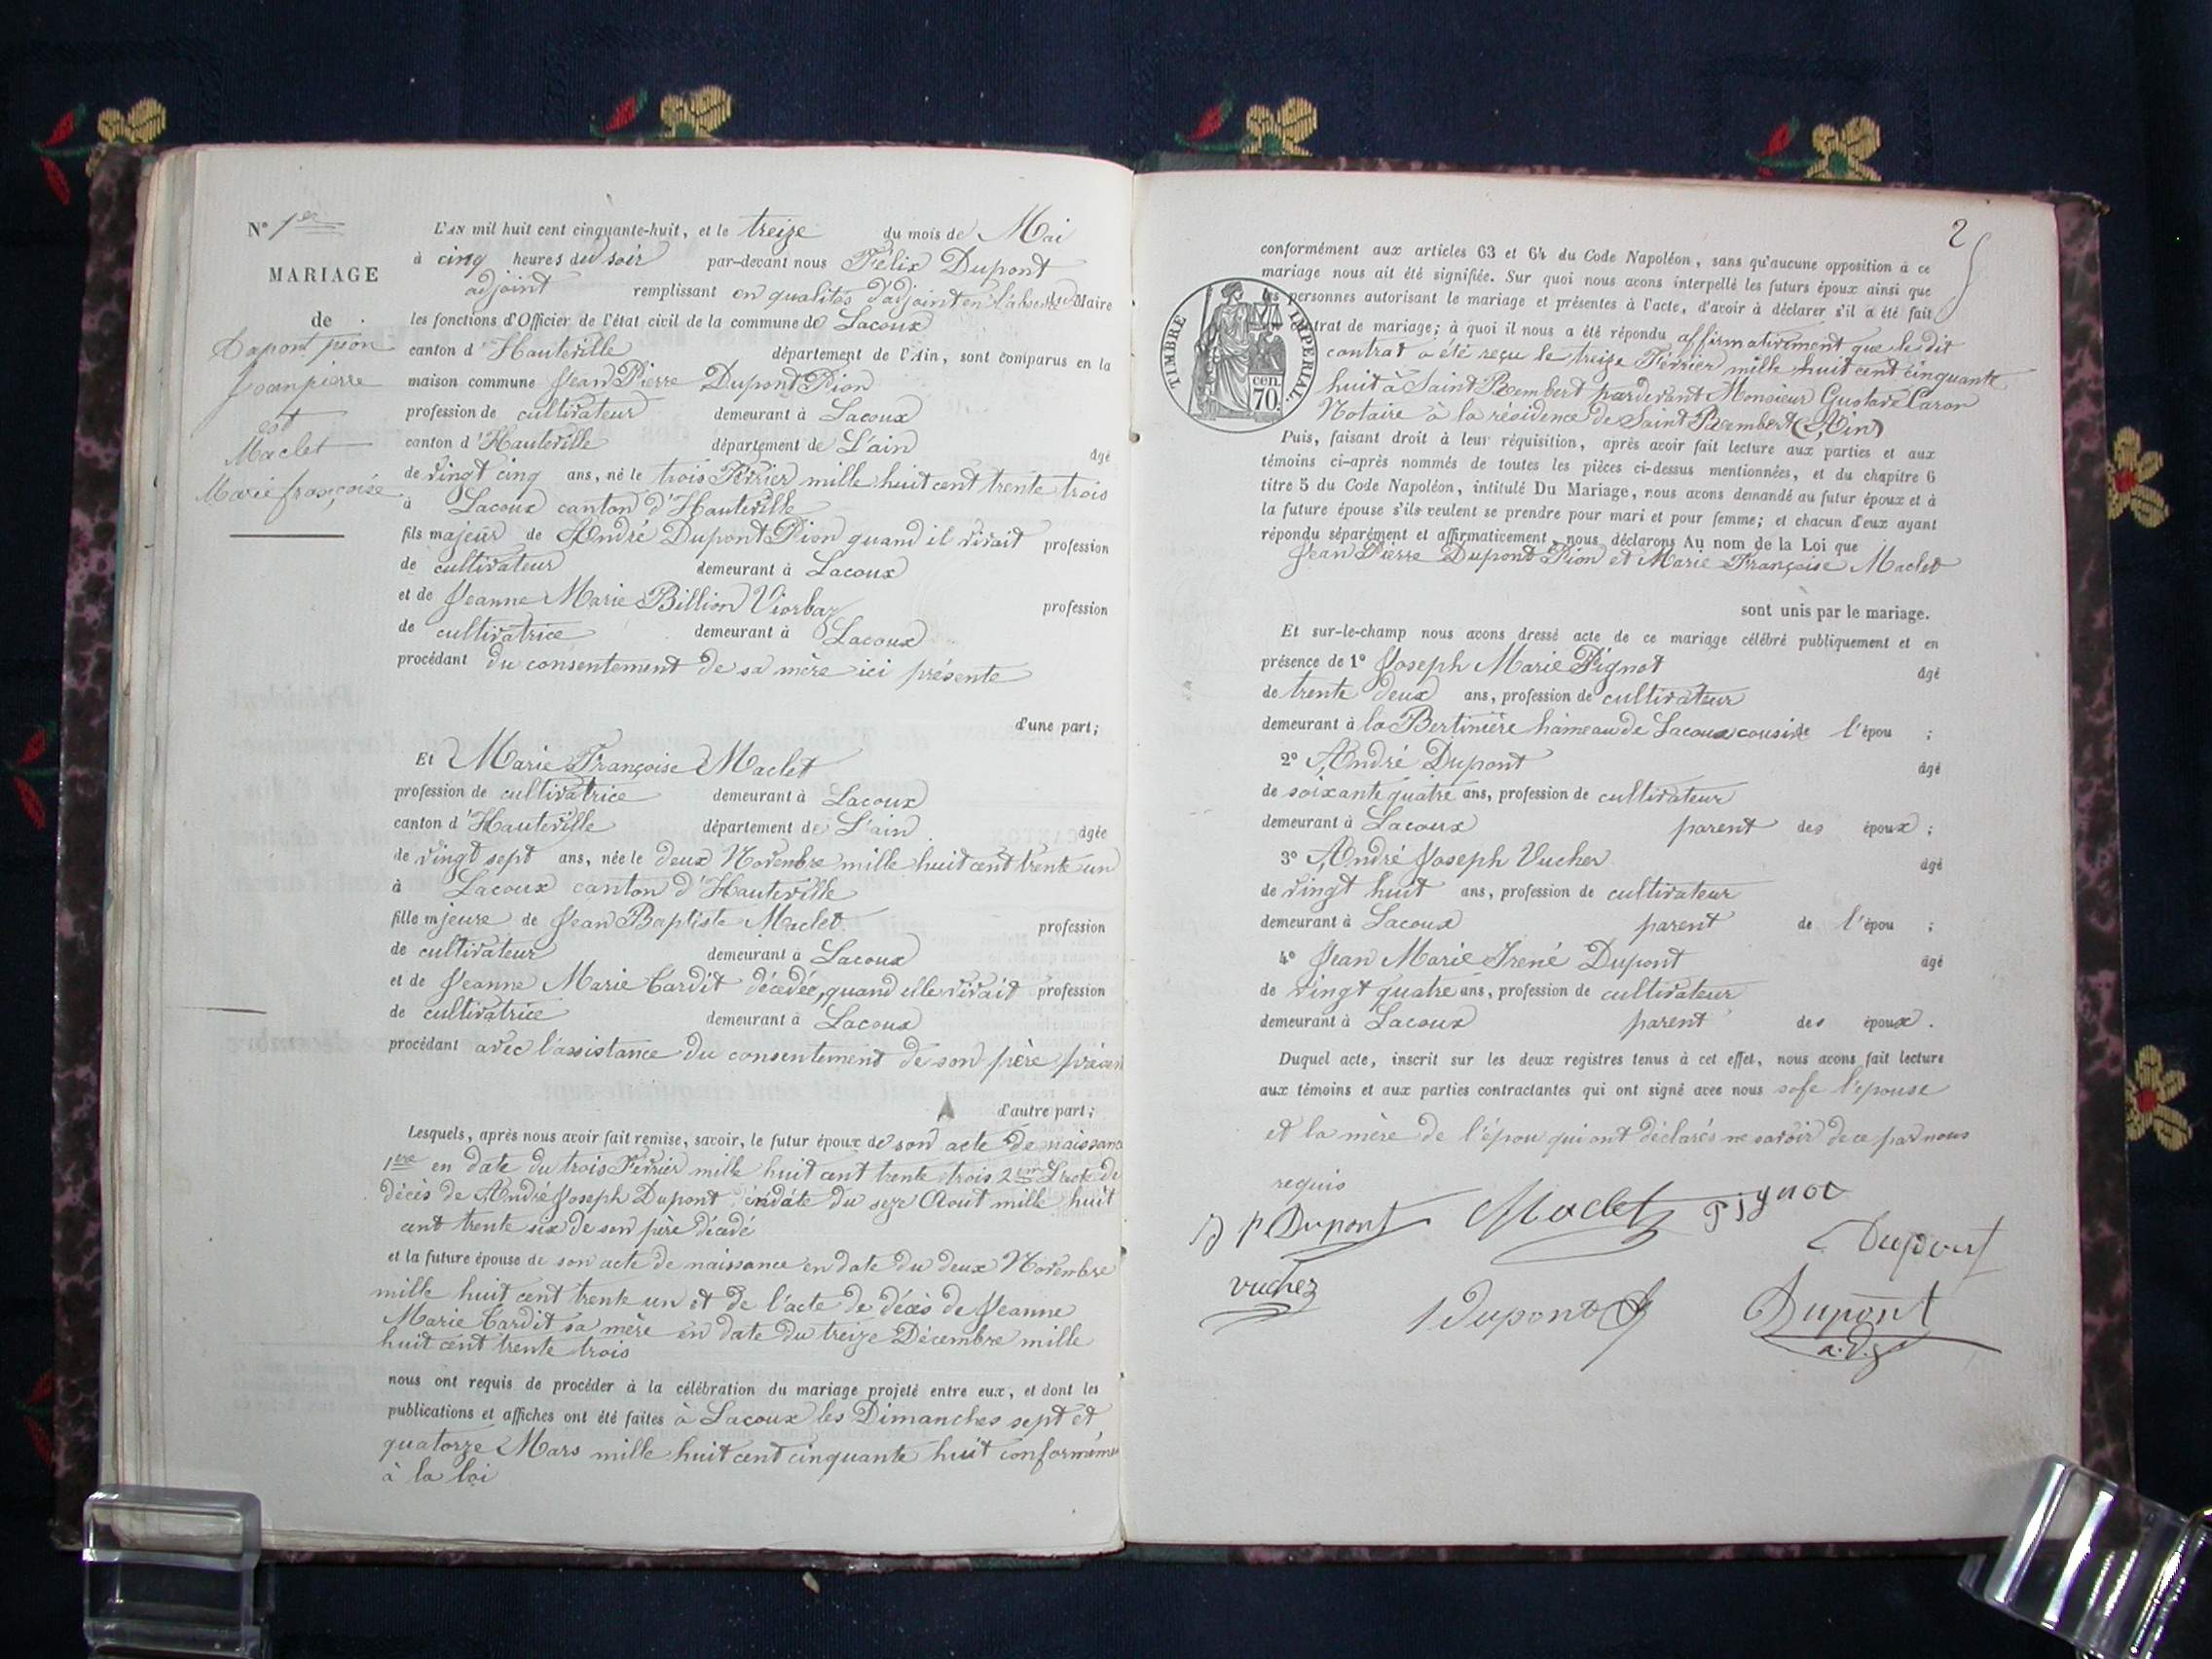 N° 1er
MARIAGE
de
Dupont pion
Jean pierre
et
Maclet
Marie françoise
L'AN mil huit cent cinquante-huit, et le treize du mois de Mai
à cinq heures du soir par-devant nous Félix Dupont
adjoint remplissant en qualités d'adjoint en l'absence du Maire
les fonctions d'Officier de l'état civil de la commune de Lacoux
canton d'Hauteville département de l'Ain, sont comparus en la
maison commune Jean Pierre Dupont Pion
profession de cultivateur demeurant à Lacoux
canton d'Hauteville département de L'ain âgé
de vingt cinq ans, né le trois Février mille huit cent trente trois
à Lacoux canton d'Hauteville
fils majeur de André Dupont Pion quand il vivait profession
de cultivateur demeurant à Lacoux
et de Jeanne Marie Billion Viorbaz profession
de cultivatrice demeurant à Lacoux
procédant du consentement de sa mère ici présente
d'une part;
Et Marie Françoise Maclet
profession de cultivatrice demeurant à Lacoux
canton d'Hauteville département de L'ain âgée
de vingt sept ans, née le deux Novembre mille huit cent trente un
à Lacoux canton d'Hauteville
fille mjeure de Jean Baptiste Maclet profession
de cultivateur demeurant à Lacoux
et de Jeanne Marie Cardit décédée, quand elle vivait profession
de cultivatrice demeurant à Lacoux
procédant avec l'assistance du consentement de son père présen
d'autre part;
Lesquels, après nous avoir fait remise, savoir, le futur époux de son acte de naissanc
1ere en date du trois Février mille huit cent trente trois 2em L'acte de
décès de André Joseph Dupont, en date du seze Aout mille huit
cent trente six de son père décédé
et la future épouse de son acte de naissance en date du deux Novembre
mille huit cent trente un et de l'acte de décès de Jeanne
Marie Cardit sa mère en date du treize Décembre mille
huit cent trente trois
nous ont requis de procéder à la célébration du mariage projeté entre eux, et dont les
publications et affiches ont été faites à Lacoux les Dimanches sept et
quatorze Mars mille huit cent cinquante huit conformémen
à la loi
2
conformément aux articles 63 et 64 du Code Napoléon, sans qu'aucune opposition à ce
mariage nous ait été signifiée. Sur quoi nous avons interpellé les futurs époux ainsi que
les personnes autorisant le mariage et présentes à l'acte, d'avoir à déclarer s'il a été fait
contrat de mariage; à quoi il nous a été répondu affirmativement que le dit
contrat a été reçu le treize Février mille huit cent cinquante
huit à Saint Rembert pardevant Monsieur Gustave Caron
Notaire à la résidence de Saint Rembert (Ain)
TIMBRE IMPERIAL
cen.
70.
Puis, faisant droit à leur réquisition, après avoir fait lecture aux parties et aux
témoins ci-après nommés de toutes les pièces ci-dessus mentionnées, et du chapitre 6
titre 5 du Code Napoléon, intitulé Du Mariage, nous avons demandé au futur époux et à
la future épouse s'ils veulent se prendre pour mari et pour femme; et chacun d'eux ayant
répondu séparément et affirmativement, nous déclarons Au nom de la Loi que
Jean Pierre Dupont Pion et Marie Françoise Maclet
sont unis par le mariage.
Et sur-le-champ nous avons dressé acte de ce mariage célébré publiquement et en
présence de 1° Joseph Marie Pignot âgé
de trente deux ans, profession de cultivateur
demeurant à la Bertinière hameau de Lacoux cousin de l'épou ;
2° André Dupont âgé
de soixante quatre ans, profession de cultivateur
demeurant à Lacoux parent des époux ;
3° André Joseph Vuchez âgé
de vingt huit ans, profession de cultivateur
demeurant à Lacoux parent de l'épou ;
4° Jean Marie Irené Dupont âgé
de vingt quatre ans, profession de cultivateur
demeurant à Lacoux parent des époux.
Duquel acte, inscrit sur les deux registres tenus à cet effet, nous avons fait lecture
aux témoins et aux parties contractantes qui ont signé avec nous sofe l'épouse
et la mère de l'épou qui ont déclarés ne savoir de ce par nous
requis
j p Dupont Maclet Pignot
Dupont
vuchez
i Dupont Dupont
a.d.j